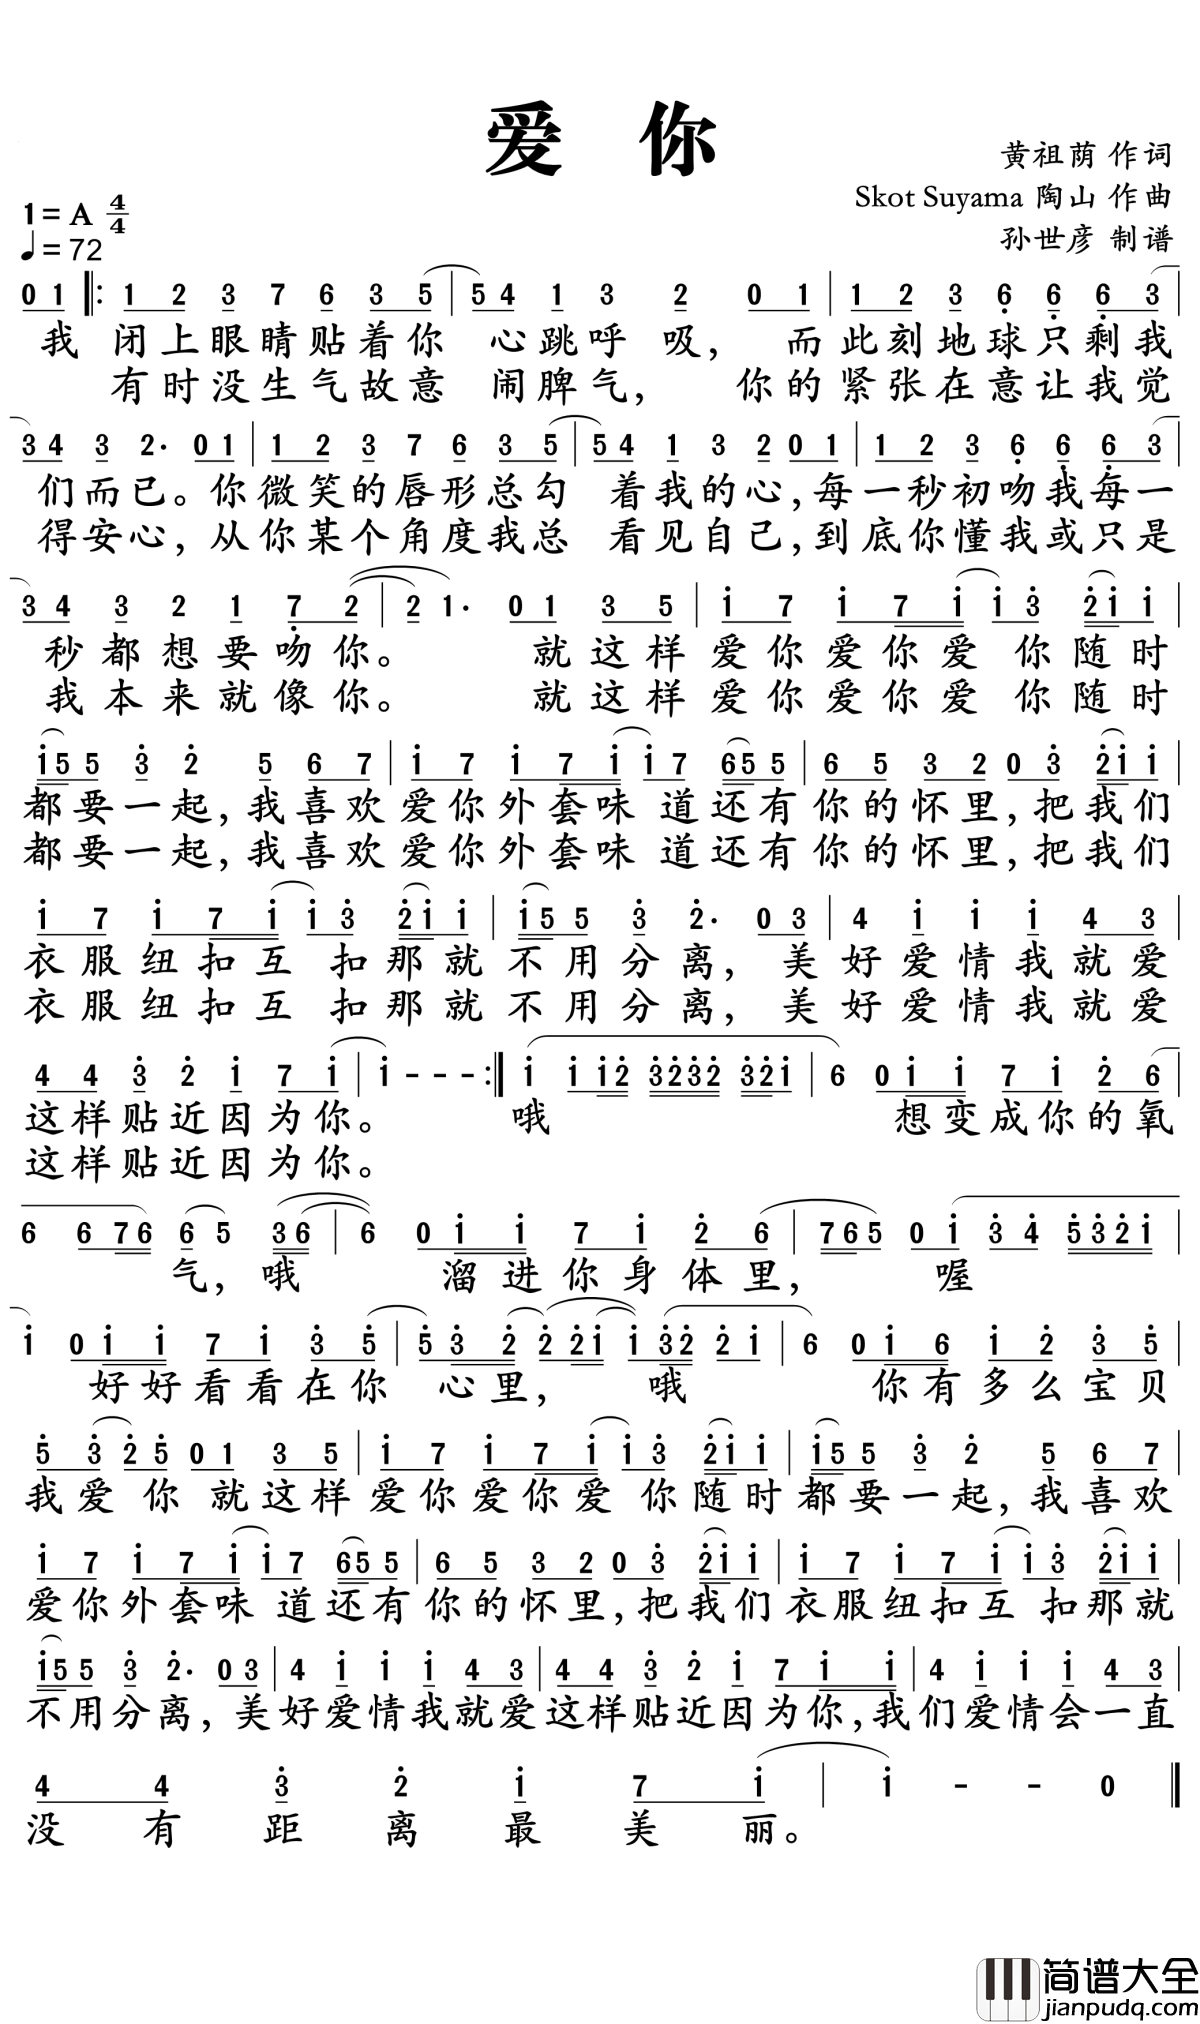 爱 你
黄祖荫 作词
Skot Suyama 陶山 作曲
孙世彦 制谱
1=A 4/4
♩=72
01 ‖: 1 2 3 7 6 3 5 | 5 4 1 3 2 0 1 | 1 2 3 6 6 6 3
我 闭上眼睛贴着你 心跳呼 吸, 而此刻地球只剩我
有时没生气故意 闹脾气, 你的紧张在意让我觉
3 4 3 2· 0 1 | 1 2 3 7 6 3 5 | 5 4 1 3 2 0 1 | 1 2 3 6 6 6 3 |
们而已。你微笑的唇形总勾 着我的心,每一秒初吻我每一
得安心,从你某个角度我总 看见自己,到底你懂我或只是
3 4 3 2 1 7 2 | 2 1· 0 1 3 5 | i 7 i 7 i i 3 2 i i |
秒都想要吻你。 就这样爱你爱你爱 你随时
我本来就像你。 就这样爱你爱你爱 你随时
i 5 5 3 2 5 6 7 | i 7 i 7 i i 7 6 5 5 | 6 5 3 2 0 3 2 i i |
都要一起,我喜欢爱你外套味 道还有你的怀里,把我们
都要一起,我喜欢爱你外套味 道还有你的怀里,把我们
i 7 i 7 i i 3 2 i i | i 5 5 3 2· 0 3 | 4 i i i 4 3 |
衣服纽扣互 扣那就不用分离,美好爱情我就爱
衣服纽扣互 扣那就不用分离,美好爱情我就爱
4 4 3 2 i 7 i | i - - - :‖ i i i 2 3 2 3 2 3 2 i | 6 0 i i 7 i 2 6
这样贴近因为你。 哦 想变成你的氧
这样贴近因为你。
6 6 7 6 6 5 3 6 | 6 0 i i 7 i 2 6 | 7 6 5 0 i 3 4 5 3 2 i |
气,哦 溜进你身体里, 喔
i 0 i i 7 i 3 5 | 5 3 2 2 2 i i 3 2 2 i | 6 0 i 6 i 2 3 5 |
好好看看在你 心里, 哦 你有多么宝贝
5 3 2 5 0 1 3 5 | i 7 i 7 i i 3 2 i i | i 5 5 3 2 5 6 7
我爱 你 就这样爱你爱你爱 你随时都要一起,我喜欢
i 7 i 7 i i 7 6 5 5 | 6 5 3 2 0 3 2 i i | i 7 i 7 i i 3 2 i i |
爱你外套味 道还有你的怀里,把我们衣服纽扣互 扣那就
i 5 5 3 2· 0 3 | 4 i i i 4 3 | 4 4 3 2 i 7 i i | 4 i i i 4 3 |
不用分离,美好爱情我就爱这样贴近因为你,我们爱情会一直
4 4 3 2 i 7 i | i - - 0 ‖
没有距离最美丽。
简谱大全
jianpudq.com